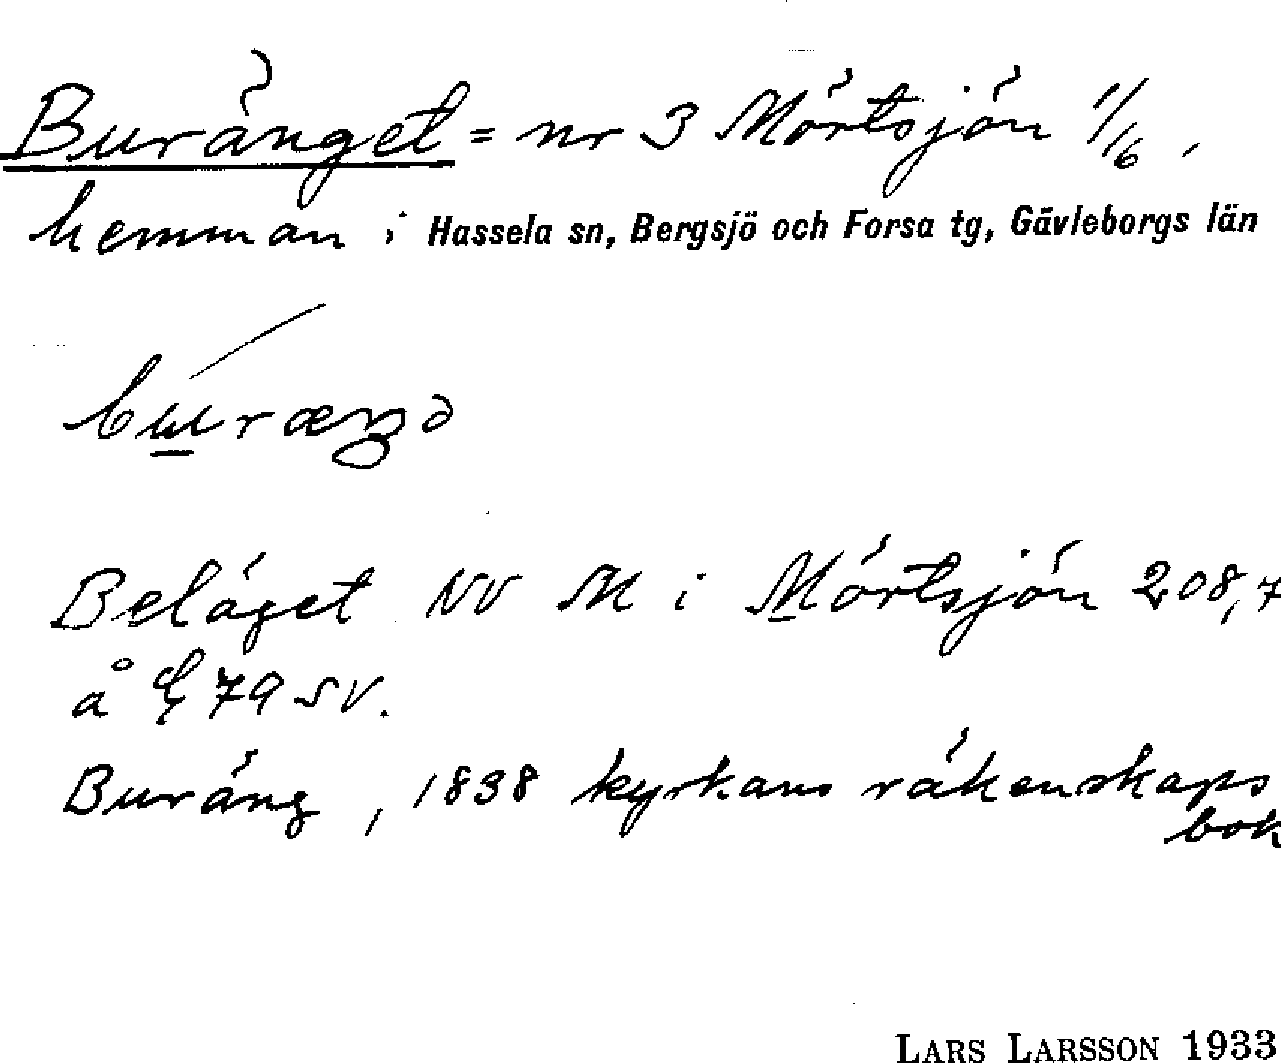 Buränget = nr 3 Mörtsjön 1/6,
hemman i Hassela sn, Bergsjö och Forsa tg, Gävleborgs län
Beläget NV M i Mörtsjön 208,7
å 79 SV.
Buräng, 1838 kyrkans räkenskaps
bok
LARS LARSSON 1933